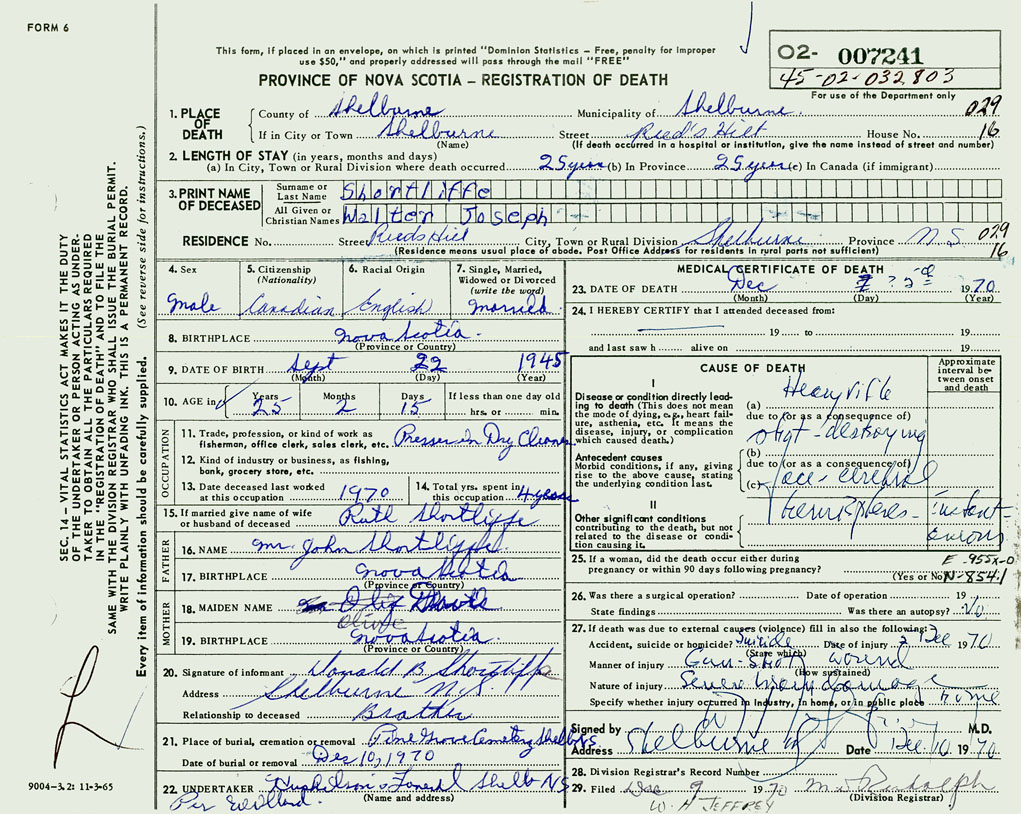 FORM 6
This form, if placed in an envelope, on which is printed "Dominion Statistics – Free, penalty for improper
use $50," and properly addressed will pass through the mail "FREE"
PROVINCE OF NOVA SCOTIA – REGISTRATION OF DEATH
02- 007241
45-02-032803
For use of the Department only
SEC. 14 – VITAL STATISTICS ACT MAKES IT THE DUTY
OF THE UNDERTAKER OR PERSON ACTING AS UNDER-
TAKER TO OBTAIN ALL THE PARTICULARS REQUIRED
IN THE "REGISTRATION OF DEATH" AND TO FILE THE
SAME WITH THE DIVISION REGISTRAR WHO SHALL ISSUE THE BURIAL PERMIT.
WRITE PLAINLY WITH UNFADING INK. THIS IS A PERMANENT RECORD.
Every item of information should be carefully supplied. (See reverse side for instructions.)
1. PLACE OF DEATH
County of Shelburne Municipality of Shelburne 029
If in City or Town Shelburne Street Reed's Hill House No. 16
(Name) (If death occurred in a hospital or institution, give the name instead of street and number)
2. LENGTH OF STAY (in years, months and days)
(a) In City, Town or Rural Division where death occurred 25 years (b) In Province 25 years (c) In Canada (if immigrant)
3. PRINT NAME OF DECEASED
Surname or Last Name Shortliffe
All Given or Christian Names Walter Joseph
RESIDENCE No. Street Reeds Hill City, Town or Rural Division Shelburne Province N S 029
(Residence means usual place of abode. Post Office Address for residents in rural parts not sufficient) 16
4. Sex
Male
5. Citizenship
(Nationality)
Canadian
6. Racial Origin
English
7. Single, Married,
Widowed or Divorced
(write the word)
Married
8. BIRTHPLACE Nova Scotia
(Province or Country)
9. DATE OF BIRTH Sept 22 1945
(Month) (Day) (Year)
10. AGE in Years Months Days If less than one day old
25 2 15 hrs. or min.
OCCUPATION
11. Trade, profession, or kind of work as
fisherman, office clerk, sales clerk, etc. Presser in Dry Cleaners
12. Kind of industry or business, as fishing,
bank, grocery store, etc.
13. Date deceased last worked
at this occupation 1970
14. Total yrs. spent in
this occupation 4 years
15. If married give name of wife
or husband of deceased Ruth Shortliffe
FATHER
16. NAME Mr. John Shortliffe
17. BIRTHPLACE Nova Scotia
(Province or Country)
MOTHER
18. MAIDEN NAME
Olive
19. BIRTHPLACE Nova Scotia
(Province or Country)
20. Signature of informant Donald B Shortliffe
Address Shelburne N.S.
Relationship to deceased Brother
21. Place of burial, cremation or removal Pine Grove Cemetery
Date of burial or removal Dec 10, 1970
22. UNDERTAKER Funeral Shelb NS
(Name and address)
Per
9004-3.2: 11-3-65
MEDICAL CERTIFICATE OF DEATH
23. DATE OF DEATH Dec ? 1970
(Month) (Day) (Year)
24. I HEREBY CERTIFY that I attended deceased from:
19 to 19
and last saw h alive on 19
CAUSE OF DEATH
Approximate interval between onset and death
I
Disease or condition directly lead-
ing to death (This does not mean
the mode of dying, e.g., heart fail-
ure, asthenia, etc. It means the
disease, injury, or complication
which caused death.)
(a) Heavy rifle
due to (or as a consequence of)
shot - destroying
Antecedent causes
Morbid conditions, if any, giving
rise to the above cause, stating
the underlying condition last.
(b)
due to (or as a consequence of)
(c) face - cerebral
hemispheres - instantaneous
II
Other significant conditions
contributing to the death, but not
related to the disease or condi-
tion causing it.
25. If a woman, did the death occur either during
pregnancy or within 90 days following pregnancy?
(Yes or No)
E-955x-0
N-854.1
26. Was there a surgical operation? Date of operation 19
State findings Was there an autopsy? No
27. If death was due to external causes (violence) fill in also the following:
Accident, suicide or homicide? Suicide Date of injury Dec 1970
(State which)
Manner of injury Gun-shot wound
(How sustained)
Nature of injury Severe damage
Specify whether injury occurred in industry, in home, or in public place home
Signed by M.D.
Address Shelburne Date Dec 10 1970
28. Division Registrar's Record Number
29. Filed Dec 9 1970 M. Rudolph
(Division Registrar)
W. H JEFFREY